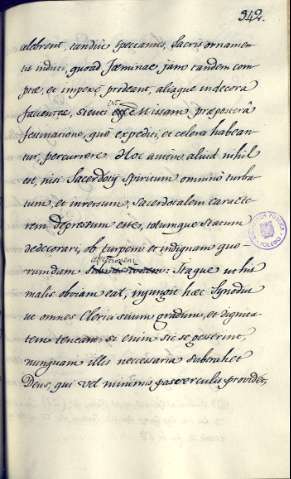 342.
celebrent, candidè speciamus, Sacris ornamen-
tis induti, quoad foeminae jam tandem com-
ptae, et impexè prodeant, aliaque indecora
faciendae, sicuti est Missam praeposterâ
festinatione, quò expediti, et celeres habean-
tur, percurrere. Hoc autem aliud nihil
est, nisi Sacerdotij Spiritum omninò turba-
tum, et inversum, Sacerdotalem caracte-
rem depressum esse, totumque Statum
dedecorari, ob turpem et indignam quo-
rumdam Itaque ut his
malis obviam eat, injungit haec Synodus
ut omnes Clerici suum gradum, et dignita-
tem teneant; si enim sic se gesserint,
nunquam illis necessaria subtrahet
Deus, qui vel minimis passerculis providet,